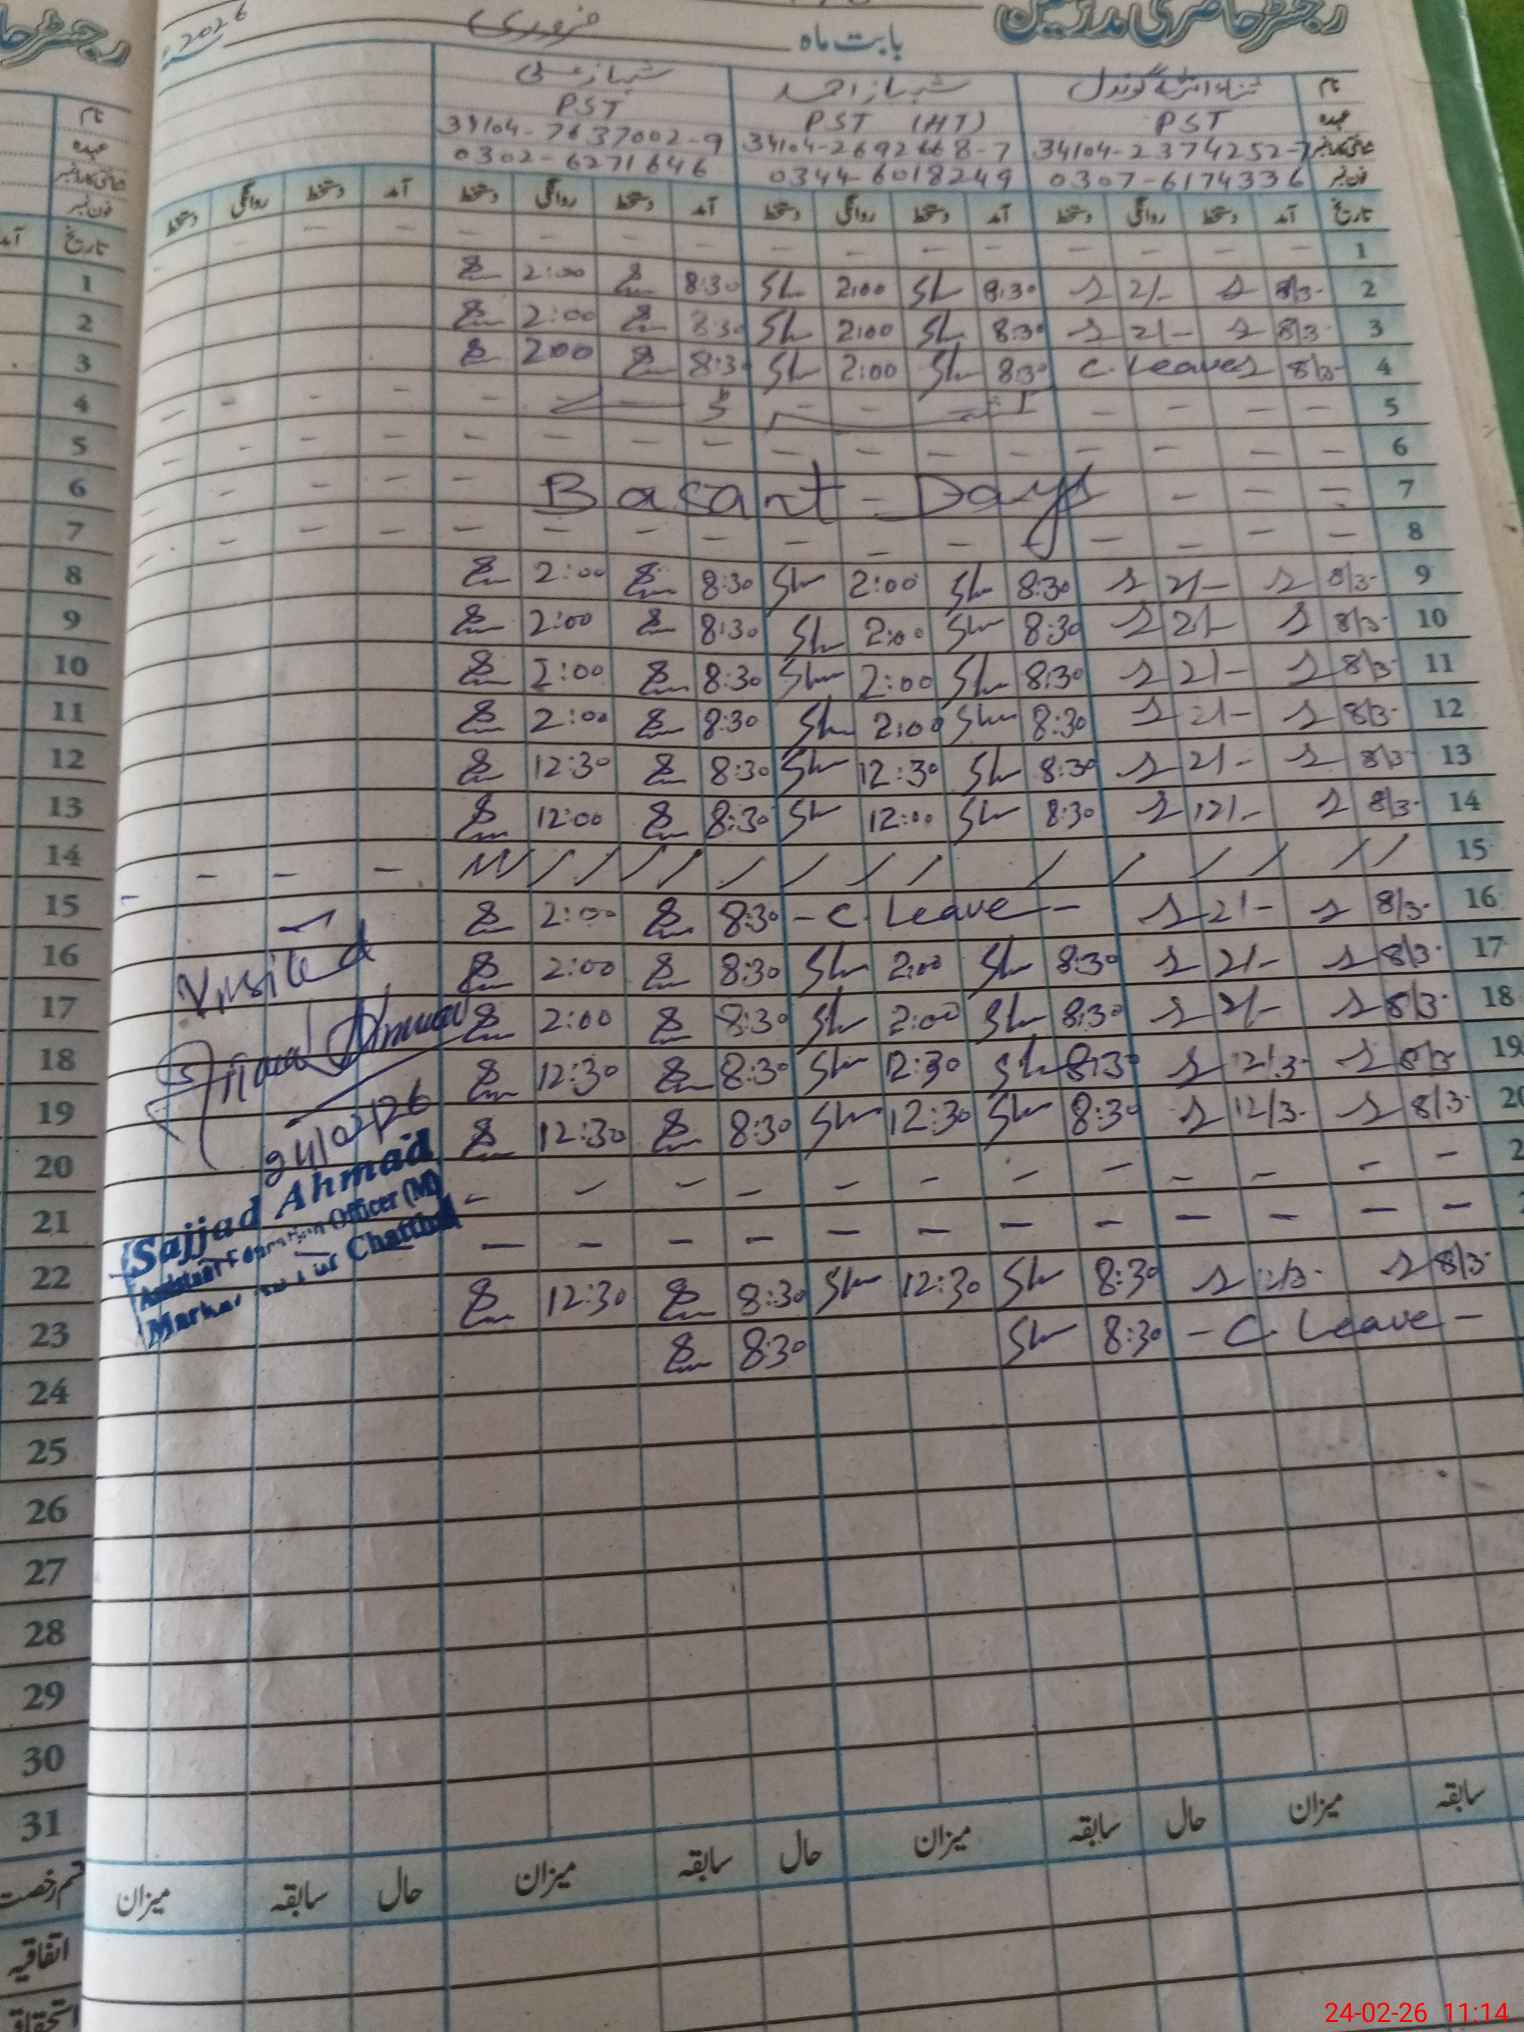 رجسٹر حاضری مدرسین
بابت ماہ فروری 2026
نام شہباز احمد شہباز علی
عہدہ PST PST (HT) PST
34104-2374252-7 34104-2692668-7 34104-7637002-9
فون نمبر 0307-6174336 0344-6018249 0302-6271646
تاریخ آمد دستخط روانگی دستخط آمد دستخط روانگی دستخط آمد دستخط روانگی دستخط آمد دستخط روانگی دستخط
1 - - - - - - - - - - - -
2 8/3- 2/- 8:30 Sh 2:00 Sh 8:30 2:00
3 8/3- 2/- 8:30 Sh 2:00 Sh 8:30 2:00
4 8/3- C. Leave 8:30 Sh 2:00 Sh 8:30 2:00
5 - - - -
6 - - - - - - - - - - - -
7 - - - Basant - Days
8 - - - - - - - - - - - -
9 8/3- 2/- 8:30 Sh 2:00 Sh 8:30 2:00
10 8/3- 2/- 8:30 Sh 2:00 Sh 8:30 2:00
11 8/3- 2/- 8:30 Sh 2:00 Sh 8:30 2:00
12 8/3- 2/- 8:30 Sh 2:00 Sh 8:30 2:00
13 8/3- 2/- 8:30 Sh 12:30 Sh 8:30 12:30
14 8/3- 12/- 8:30 Sh 12:00 Sh 8:30 12:00
15
16 8/3- 2/- - C. Leave - 8:30 2:00
17 8/3- 2/- 8:30 Sh 2:00 Sh 8:30 2:00
18 8/3- 2/- 8:30 Sh 2:00 Sh 8:30 2:00
19 8/3- 12/3- 8:30 Sh 12:30 Sh 8:30 12:30
20 8/3- 12/3- 8:30 Sh 12:30 Sh 8:30 12:30
- - - - - - - - - - - -
- - - - - - - - - - - -
8/3- 12/3- 8:30 Sh 12:30 Sh 8:30 12:30
- C. Leave - 8:30 Sh 8:30
Visited
24/02/26
Sajjad Ahmad
Assistant Education Officer (M)
Markaz
سابقہ میزان حال سابقہ میزان حال سابقہ میزان حال سابقہ میزان
رجسٹر
نام
عہدہ
شناختی کارڈ نمبر
فون نمبر
تاریخ آمد
1
2
3
4
5
6
7
8
9
10
11
12
13
14
15
16
17
18
19
20
21
22
23
24
25
26
27
28
29
30
31
قسم رخصت
اتفاقیہ
استحقاقیہ
24-02-26 11:14